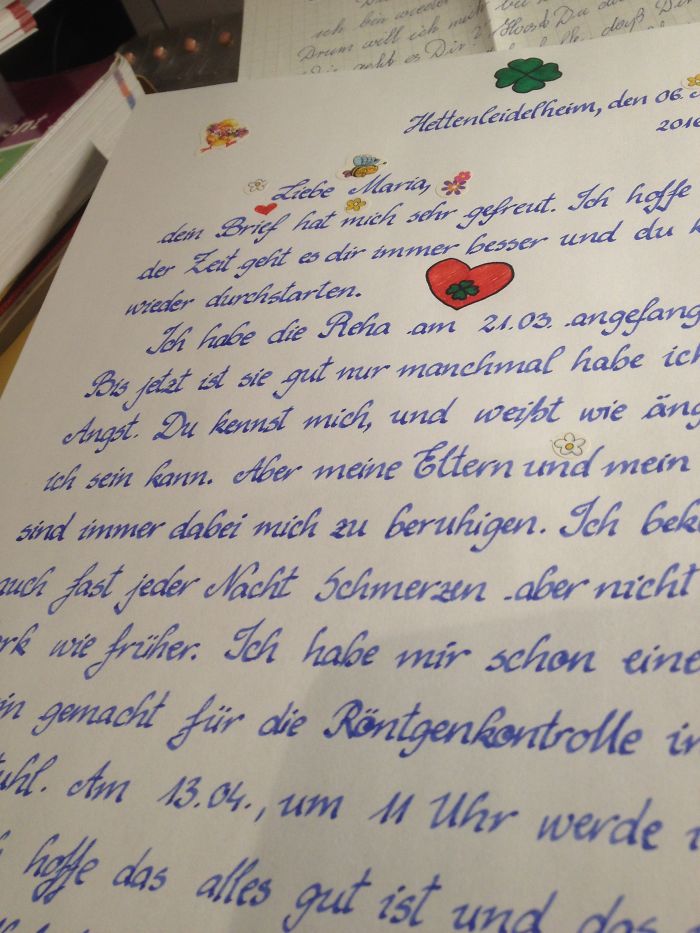 ich bin wieder
Drum will ich mich
geht es Dir? Hast Du
daß Dir
ent
Hettenleidelheim, den 06.
2016
Liebe Maria,
dein Brief hat mich sehr gefreut. Ich hoffe
der Zeit geht es dir immer besser und du k
wieder durchstarten.
Ich habe die Reha am 21.03. angefang
Bis jetzt ist sie gut nur manchmal habe ich
Angst. Du kennst mich, und weißt wie äng
ich sein kann. Aber meine Eltern und mein
sind immer dabei mich zu beruhigen. Ich bek
auch fast jeder Nacht Schmerzen aber nicht
rk wie früher. Ich habe mir schon eine
in gemacht für die Röntgenkontrolle in
uhl. Am 13.04., um 11 Uhr werde i
hoffe das alles gut ist und das